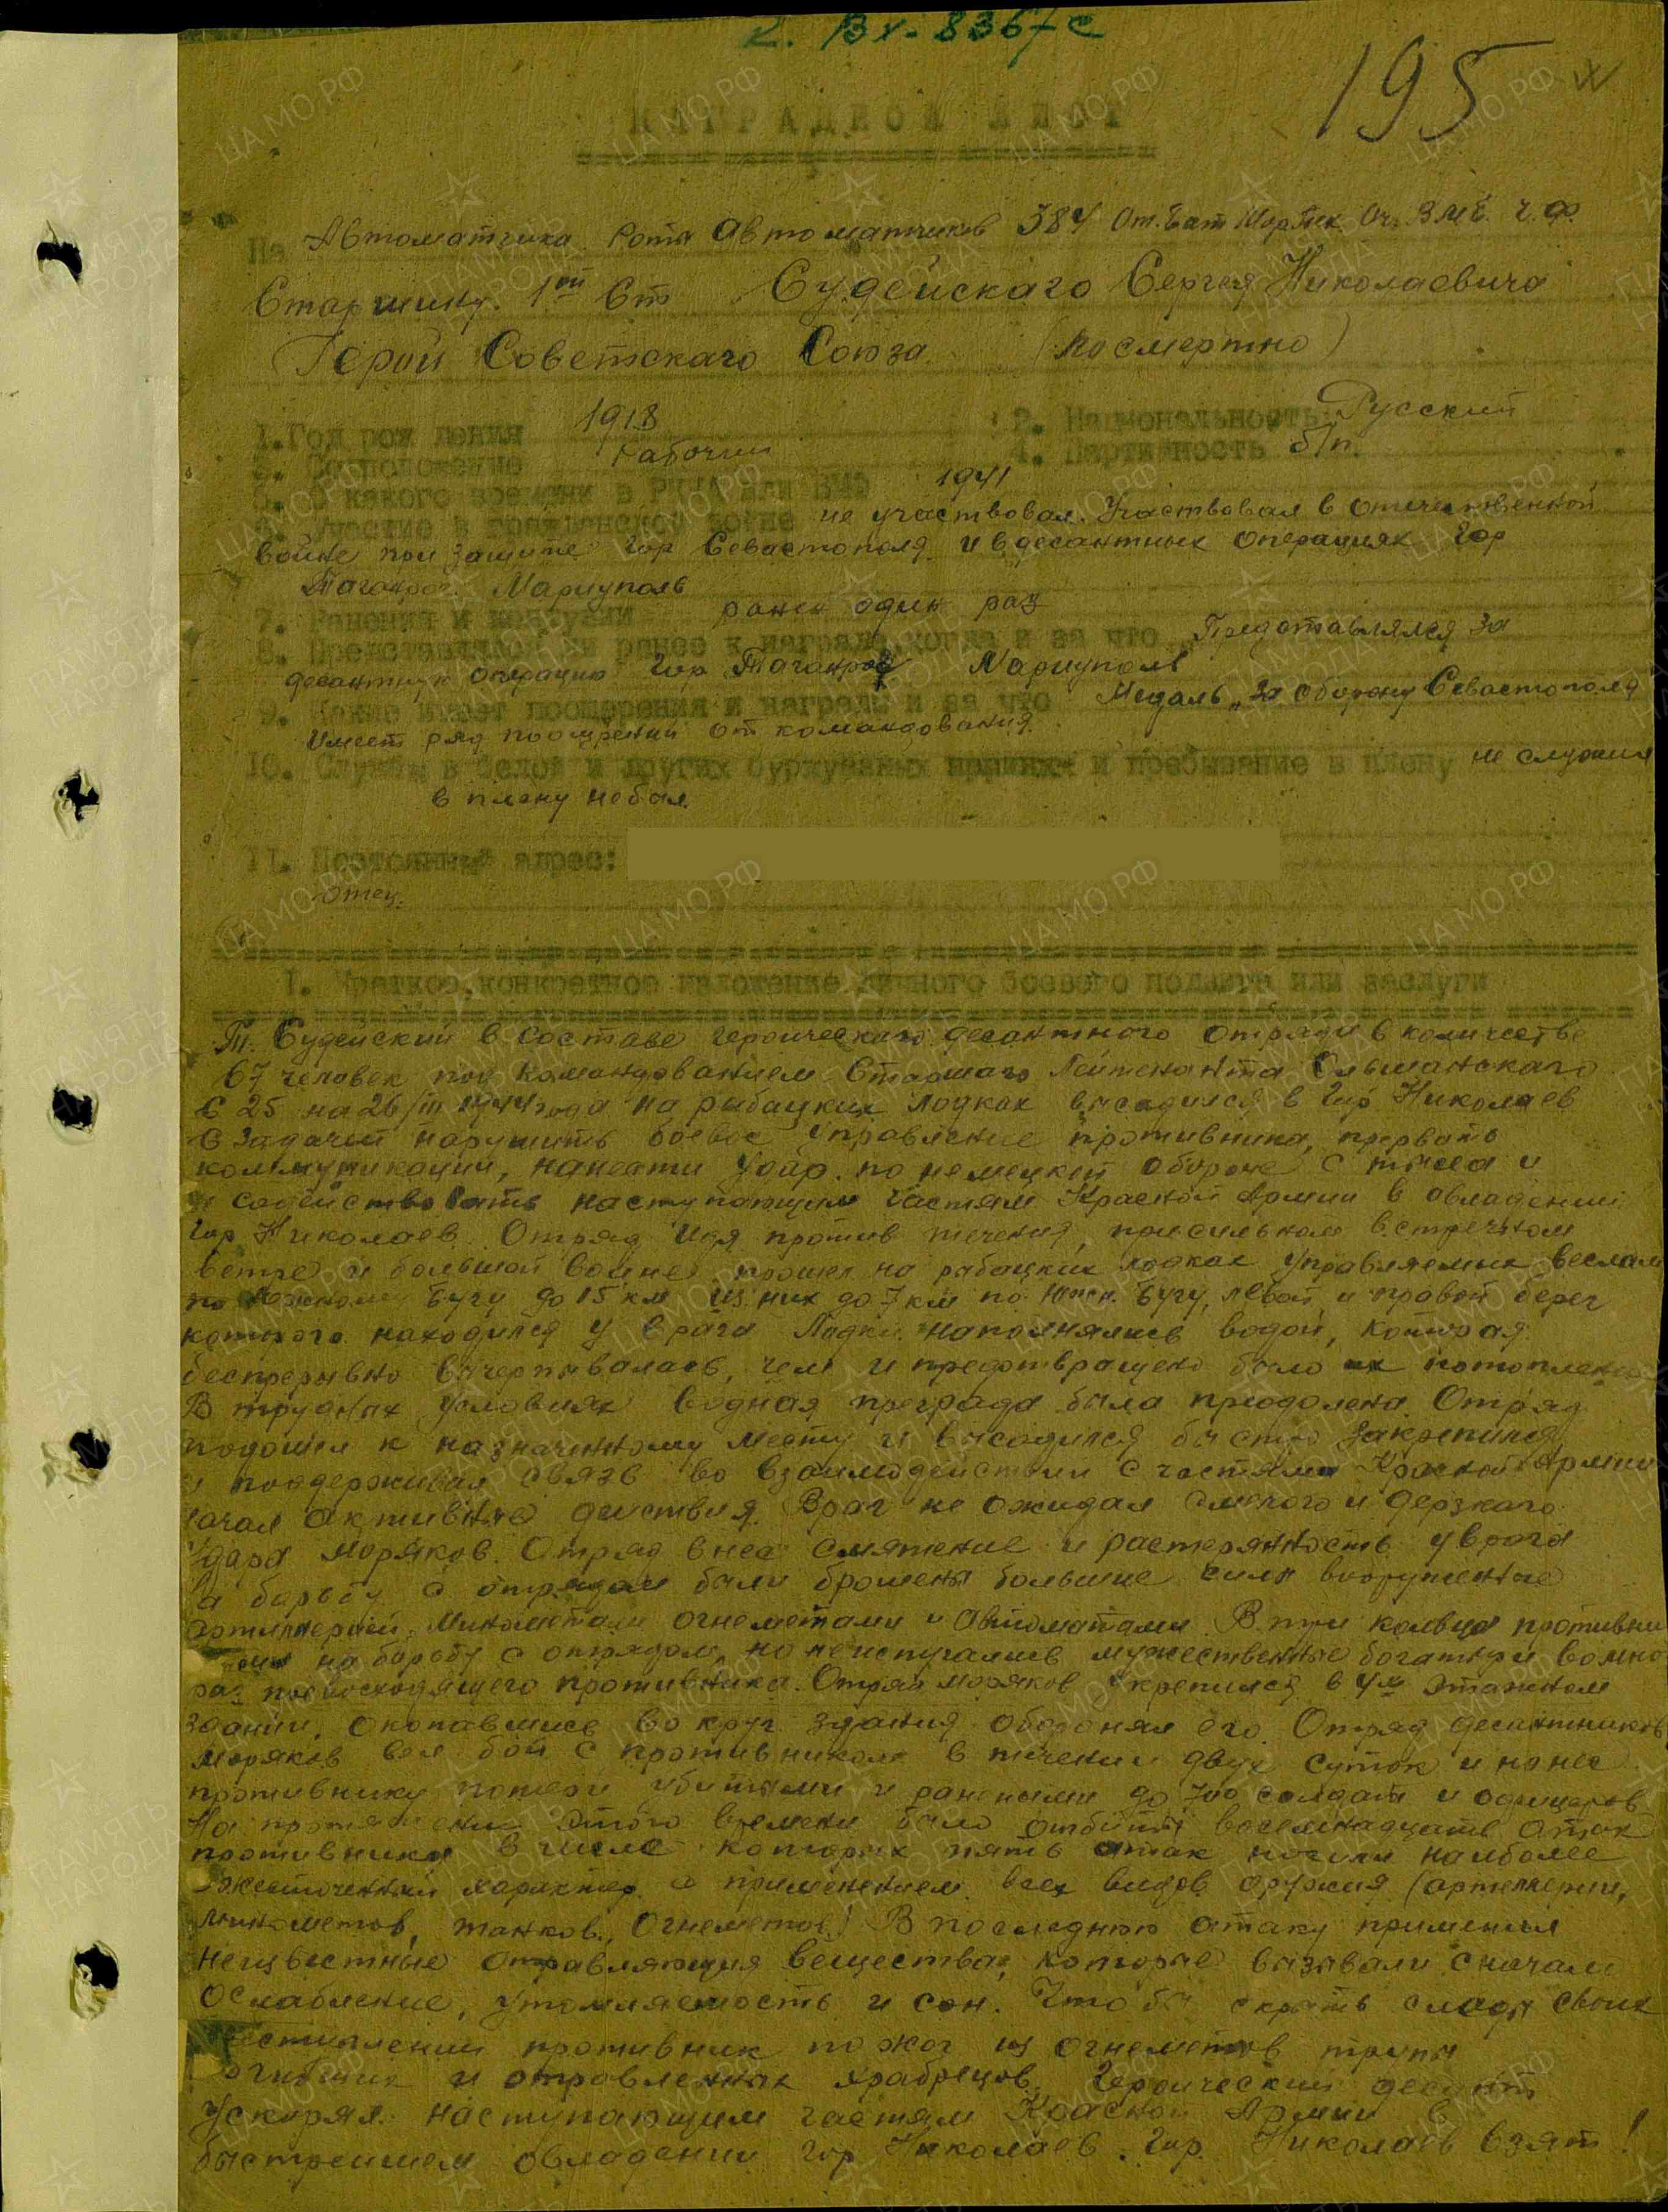 Вх. 8367с
195
НАГРАДНОЙ ЛИСТ
На Автоматчика Роты Автоматчиков 384 От. Бат Мор Пех Оч. В.М.Б. Ч.Ф.
Старшину 1ой Ст Судейскаго Сергея Николаевича
Герой Советскаго Союза (посмертно)
1. Год рождения 1918 2. Национальность Русский
3. Соцположение Рабочий 4. Партийность б/п.
5. С какого времени в РККА или ВМФ 1941
6. Участие в гражданской войне не участвовал. Участвовал в отечественной
войне при защите гор Севастополя и в десантных операциях гор
Таганрог. Мариуполь
7. Ранения и контузии ранен один раз
8. Представлялся ли ранее к награде, когда и за что Представлялся за
десантную операцию гор Таганрог Мариуполь
9. Какие имеет поощрения и награды и за что Медаль „За оборону Севастополя
имеет ряд поощрений от командования
10. Служба в белой и других буржуазных армиях и пребывание в плену не служил
в плену небыл.
11. Постоянный адрес:
отец.
1. Краткое, конкретное изложение личного боевого подвига или заслуги
Т. Судейский в составе героическаго десантного отряда в количестве
67 человек под командованием Старшаго Лейтенанта Ольшанскаго
с 25 на 26/III 1944 года на рыбацких лодках высадился в гор Николаев
с задачей нарушить боевое управление противника, прервать
коммуникации, нанести удар по немецкой обороне с тыла и
содействовать наступающим частям Красной Армии в овладении
гор Николаев. Отряд идя против течения, при сильном встречном
ветре и большой волне прошел на рабацких лодках управляемых веслами
по Южному Бугу до 15 км из них до 7 км по Южн. Бугу, левый и правый берег
которого находился у врага Лодки наполнялись водой, которая
беспрерывно вычерпывалась, чем и предотвращено было их потопление
В трудных условиях водная преграда была преодолена Отряд
подошел к назначенному месту и высадился быстро закрепился
и поддерживая связь во взаимодействии с частями Красной Армии
начал активные действия. Враг не ожидал смелого и дерзкаго
удара моряков. Отряд внес смятение и растерянность у врага
На борьбу с отрядом были брошены большие силы вооруженные
артиллерией, минометами огнеметами и автоматами. В три кольца противник
на борьбу с отрядом, но неиспугались мужественные богатыри во много
раз превосходящего противника. Отряд моряков укрепился в 4х этажном
здании, окопавшись вокруг здания оборонял его. Отряд десантников
моряков вел бой с противником в течении двух суток и нанес
противнику потери убитыми и ранеными до 700 солдат и офицеров
На протяжении этого времени было отбиты восемнадцать атак
противника в числе которых пять атак носили наиболее
ожесточенный характер с применением всех видов оружия (артиллерии,
минометов, танков, огнеметов) В последнюю атаку применил
неизвестные отравляющия вещества, которые вызывали сначала
ослабление, утомляемость и сон. Чтобы скрыть следы своих
преступлений противник пожог из огнеметов трупы
погибших и отравленных храбрецов. Героический десант
ускорял наступающим частям Красной Армии в
быстрейшем овладении гор Николаев. Гор. Николаев взят!